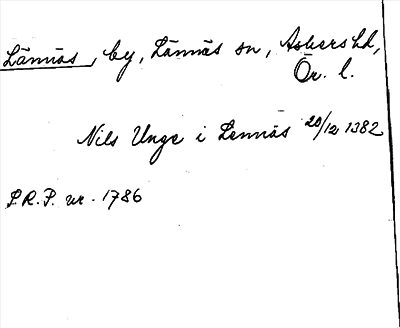 Lännäs, by, Lännäs sn, Askers hd,
Ör. l.
Nils Unge i Lennäs 20/12 1382
S.R.P. nr. 1786